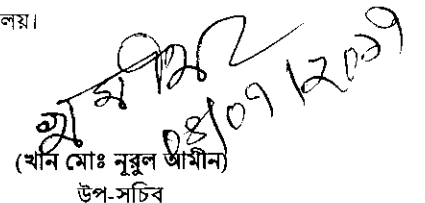 লয়।
০৪/০৭/২০১৭
(খান মোঃ নূরুল আমীন)
উপ-সচিব